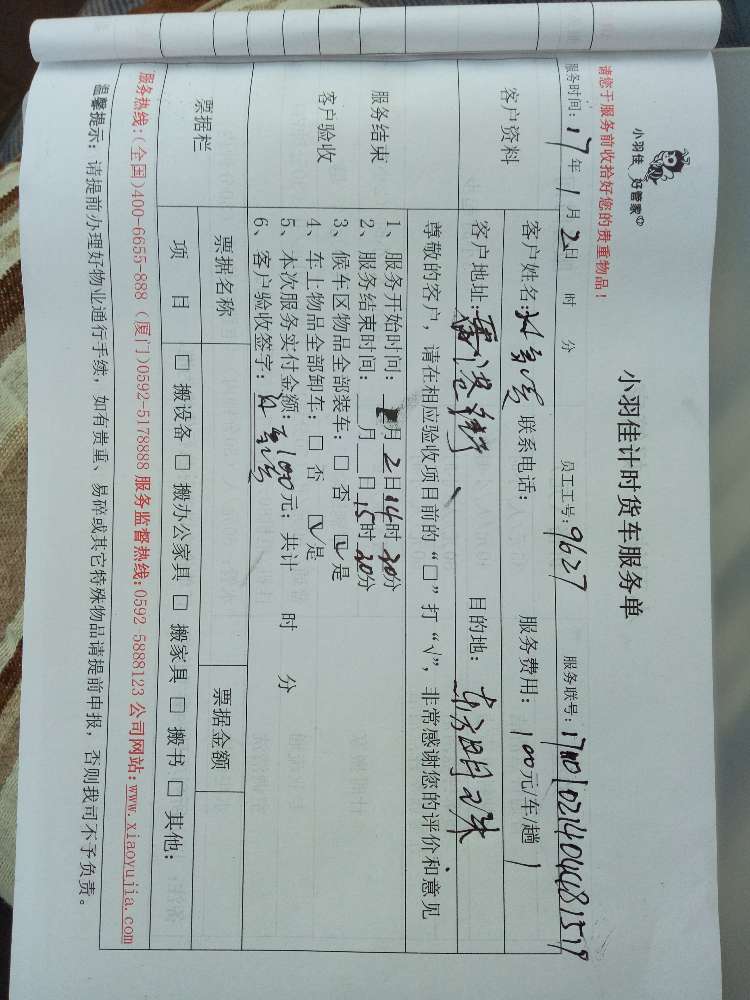 小羽佳 好管家
小羽佳计时货车服务单
请您于服务前收拾好您的贵重物品!
服务时间: 17年 1月 2日 时 分 员工工号: 9627 服务联号:
客户资料
客户姓名: 联系电话: 服务费用: 100元/车/趟
客户地址: 目的地: 东方明珠
尊敬的客户,请在相应验收项目前的“□”打“√”,非常感谢您的评价和意见
服务结束
客户验收
1、服务开始时间: 1月 2日 14时 20分
2、服务结束时间: __月__日 15时 20分
3、候车区物品全部装车: □ 否 ☑ 是
4、车上物品全部卸车: □ 否 ☑ 是
5、本次服务实付金额: 100元; 共计 时 分
6、客户验收签字:
票据栏
票据名称 票据金额
项 目 □ 搬设备 □ 搬办公家具 □ 搬家具 □ 搬书 □ 其他:
服务热线:(全国)400-6655-888 (厦门)0592-5178888 服务监督热线:0592-5888123 公司网站:www.xiaoyujia.com
温馨提示: 请提前办理好物业通行手续, 如有贵重、易碎或其它特殊物品请提前申报, 否则我司不予负责。